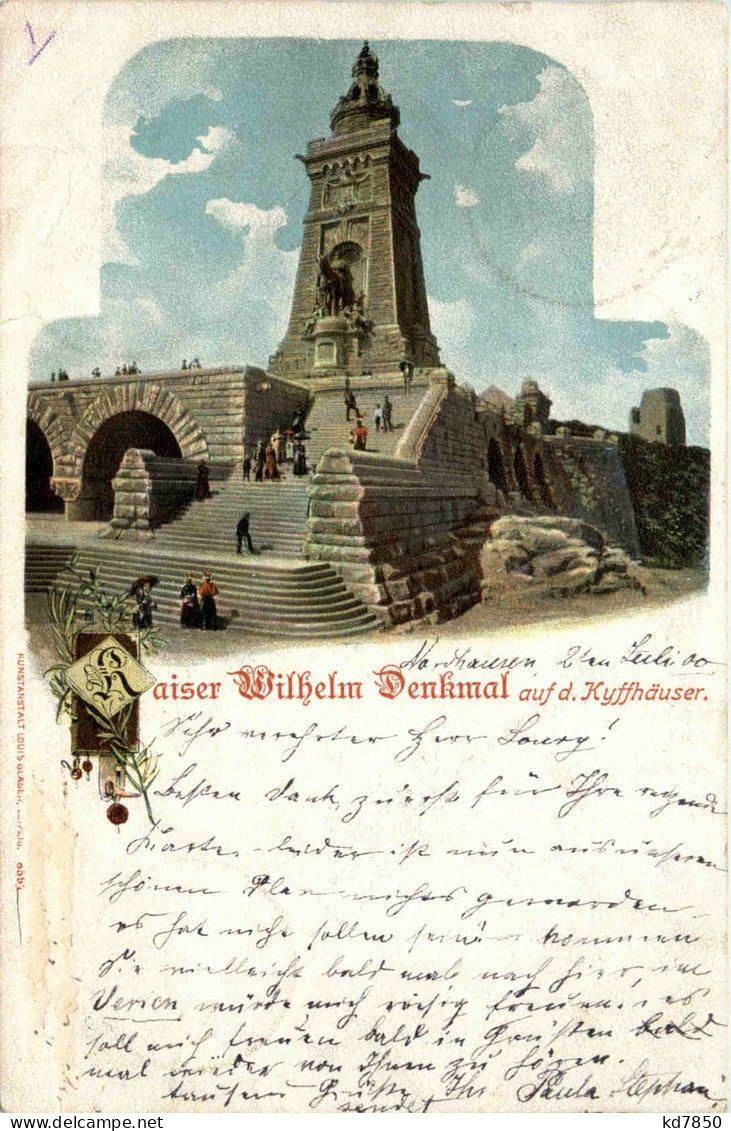 Nordhausen, 2ten Juli 00
Kaiser Wilhelm Denkmal auf d. Kyffhäuser.
KUNSTANSTALT LOUIS GLASER, LEIPZIG.
Sehr verehrter Herr
Besten Dank zuerst für Ihre
Karte, leider ist nun aus unserem
schönen Plan nichts geworden
es hat nicht sollen sein. kommen
Sie vielleicht bald mal nach hier, im
würde mich riesig freuen. es
soll mich freuen bald in
mal wieder von Ihnen zu hören.
tausend Grüße Ihre Paula Stephan
sendet
kd7850